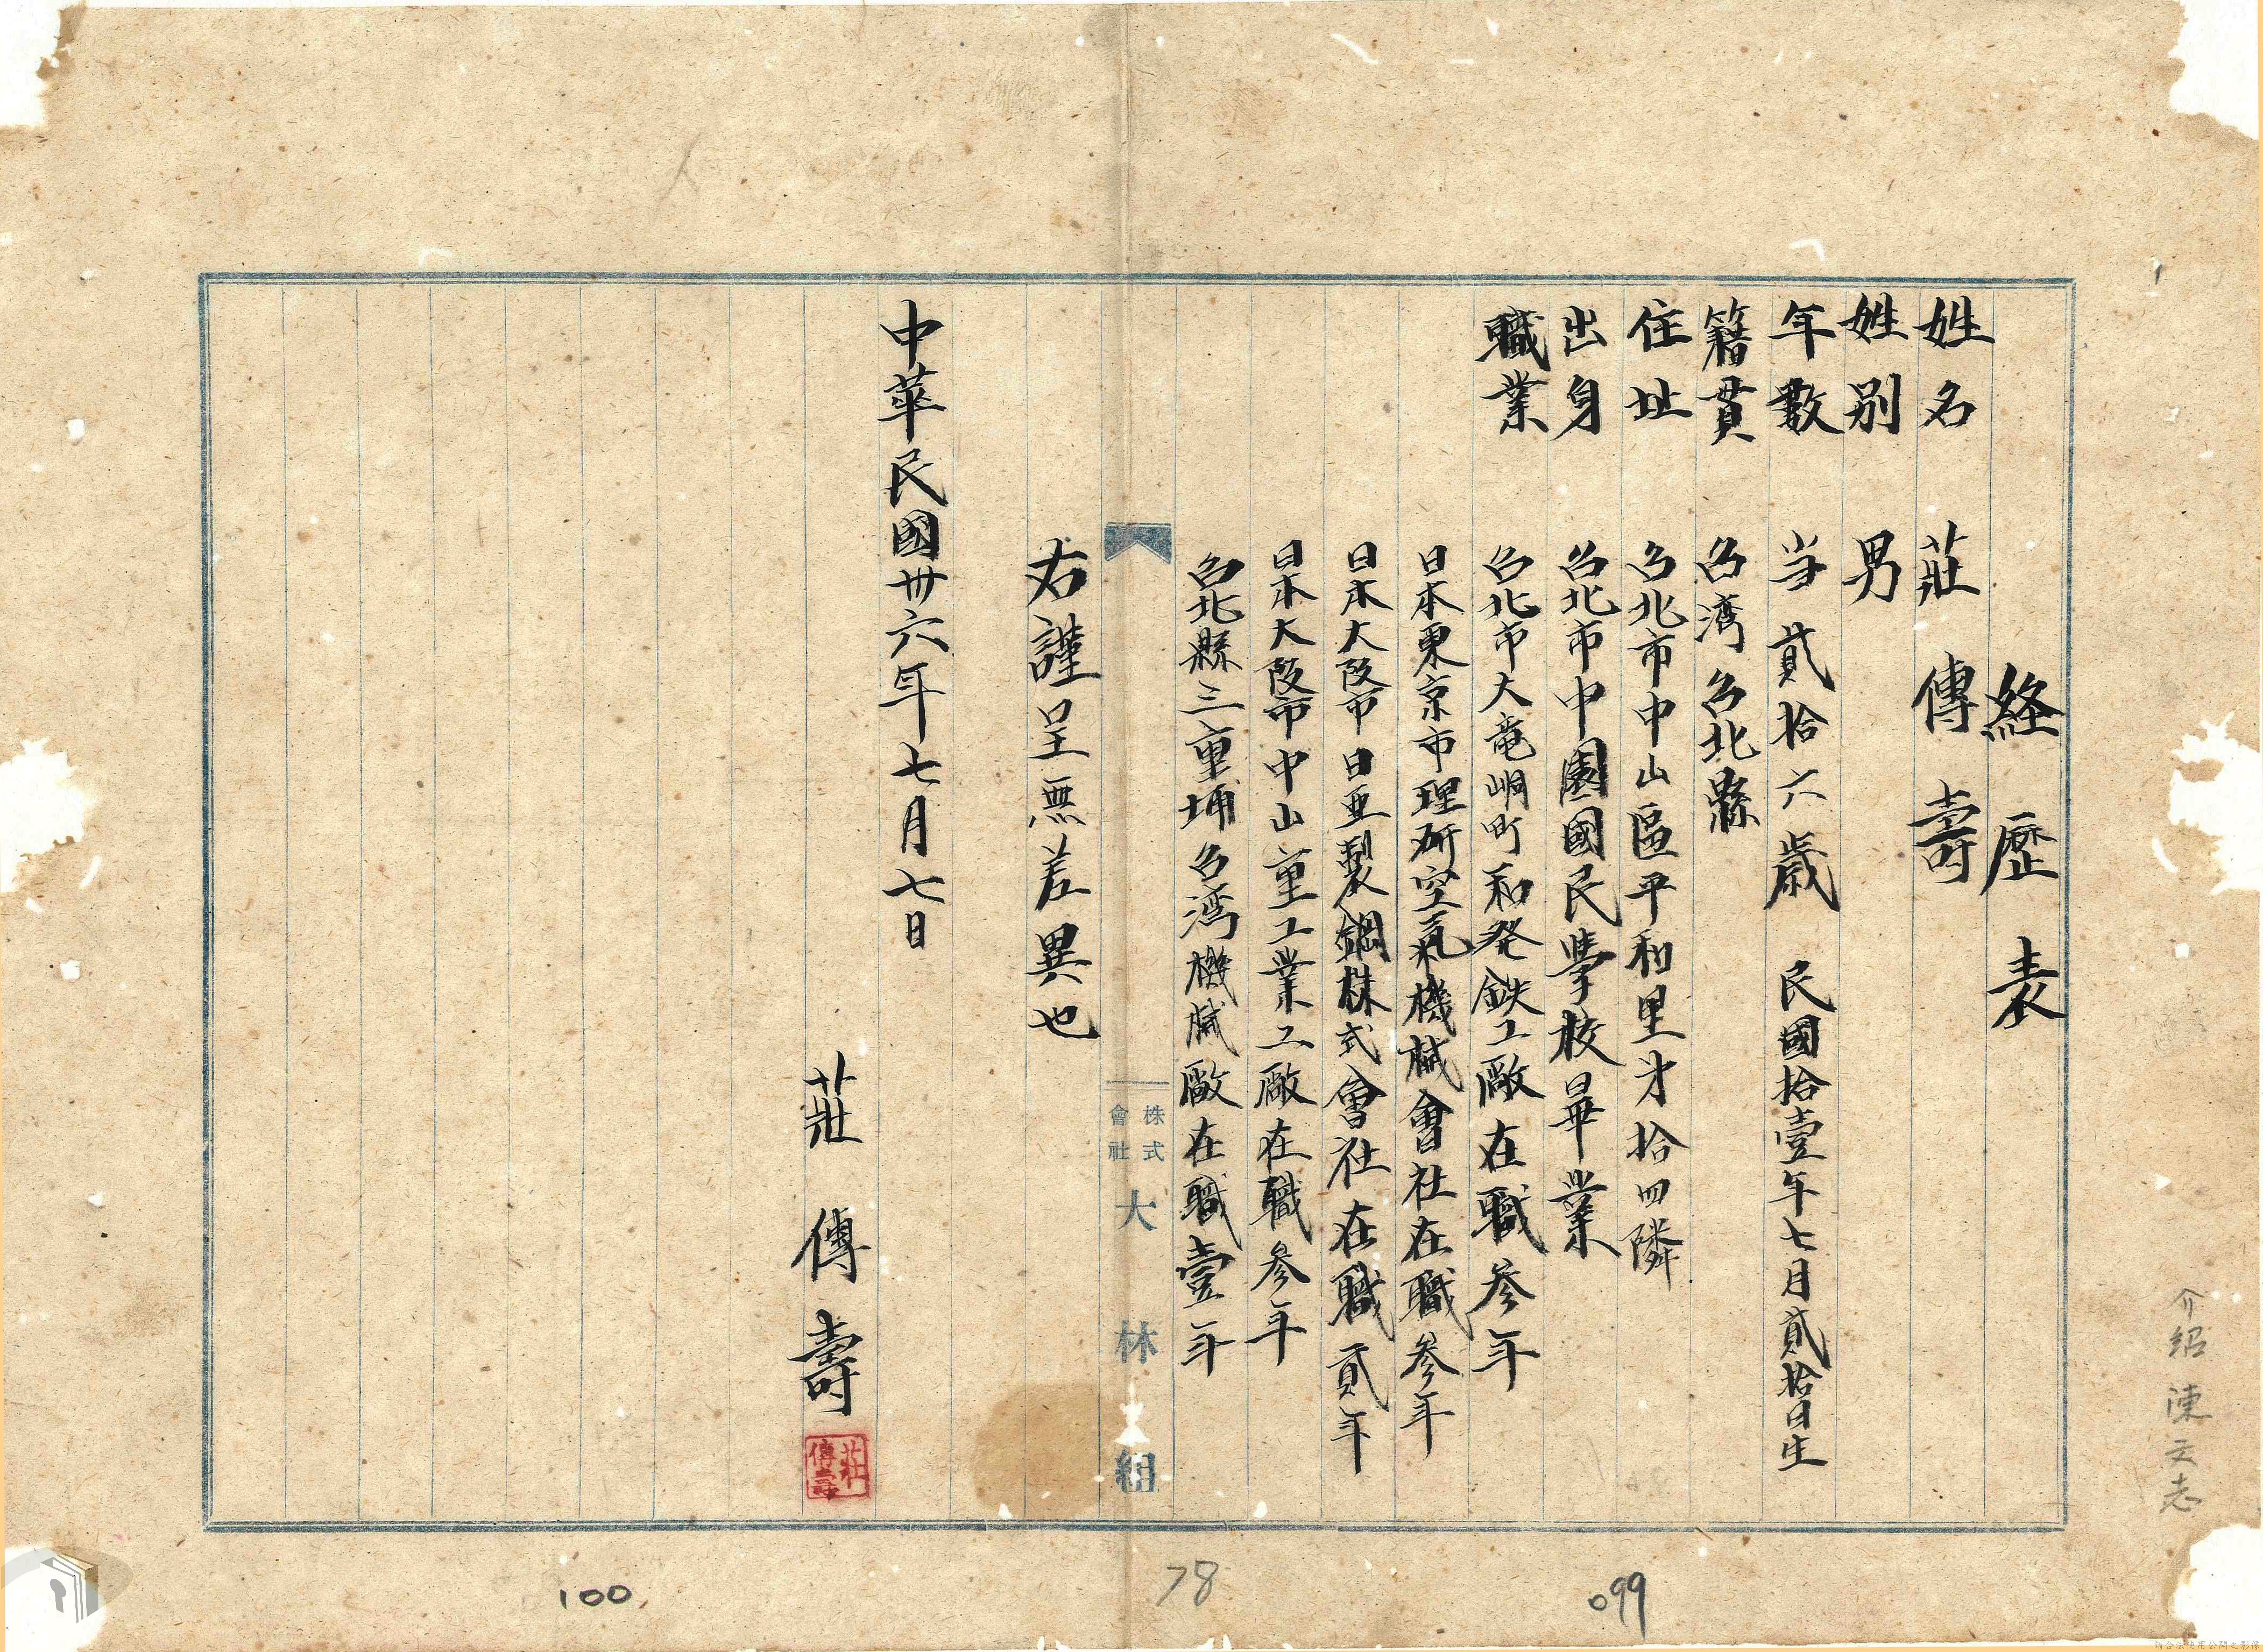 経歴表
姓名 莊傳壽
姓別 男
年數 当貳拾六歳 民國拾壹年七月貳拾日生
籍貫 台湾台北縣
住址 台北市中山區平和里才拾四隣
出身 台北市中園國民學校畢業
職業 台北市大竜峒町和発鉄工廠在職参年
日本東京市理研空氣機械會社在職参年
日本大阪市日亜製鋼株式會社在職貳年
日本大阪市中山重工業工廠在職参年
台北縣三重埔台湾機械廠在職壹年
株式會社 大林組
右謹呈無差異也
中華民國卅六年七月七日
莊傳壽
莊傳壽
介紹 陳云志
099
78
100